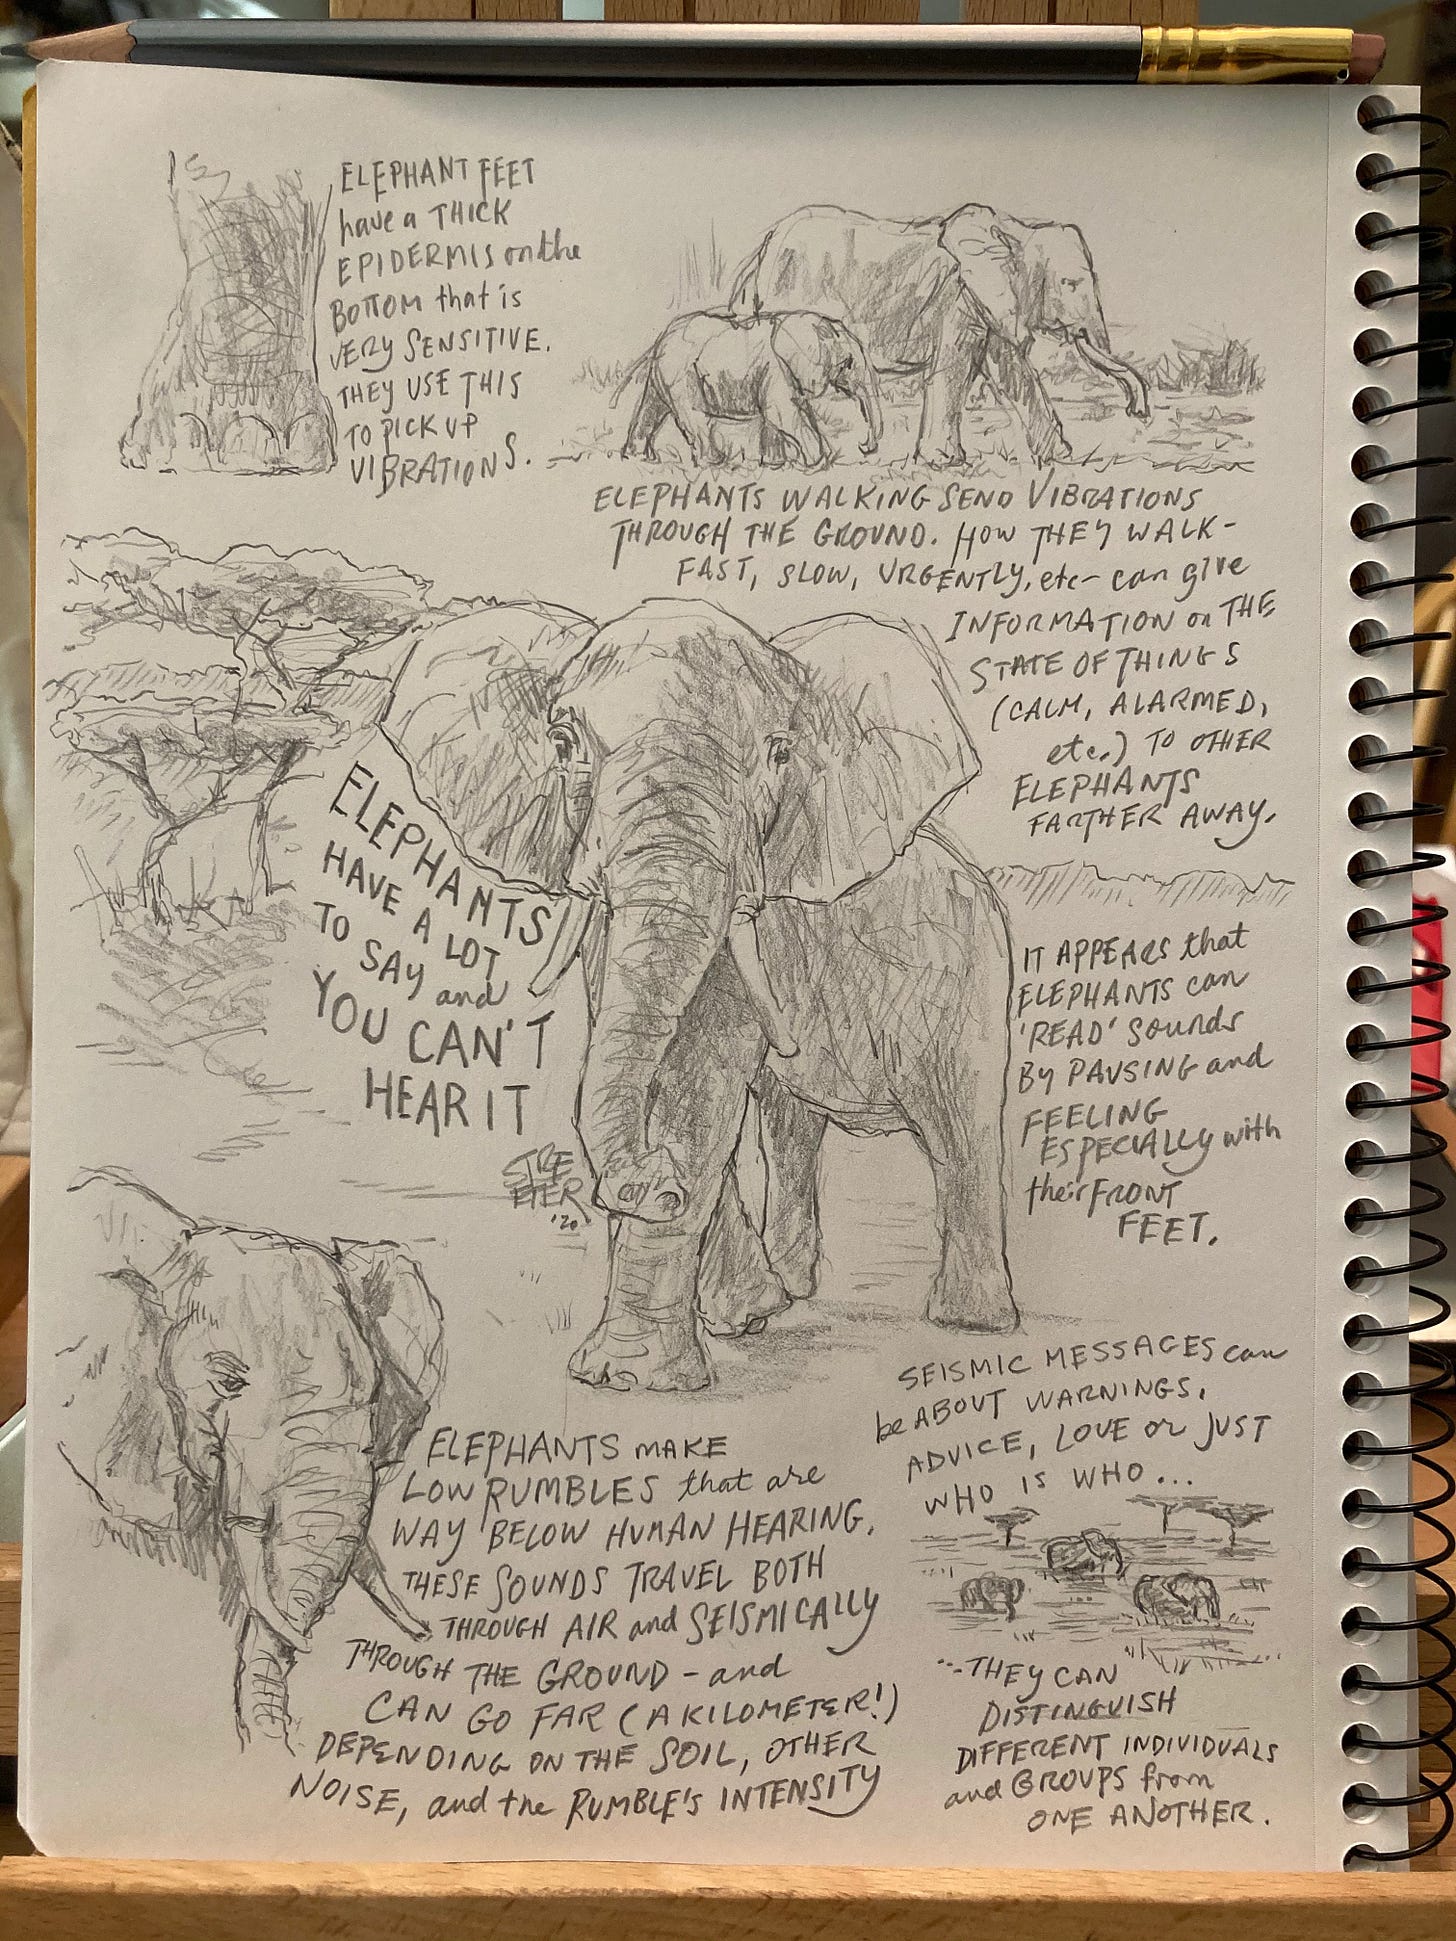 ELEPHANT FEET
have a THICK
EPIDERMIS on the
BOTTOM that is
VERY SENSITIVE.
THEY USE THIS
TO PICK UP
VIBRATIONS.
ELEPHANTS WALKING SEND VIBRATIONS
THROUGH THE GROUND. HOW THEY WALK-
FAST, SLOW, URGENTLY, etc- can give
INFORMATION on THE
STATE OF THINGS
(CALM, ALARMED,
etc.) TO OTHER
ELEPHANTS
FARTHER AWAY.
ELEPHANTS
HAVE A LOT
TO SAY and
YOU CAN'T
HEAR IT
IT APPEARS that
ELEPHANTS can
'READ' sounds
By PAUSING and
FEELING
ESPECIALLY with
their FRONT
FEET.
STRE
ETER
'20
SEISMIC MESSAGES can
be ABOUT WARNINGS,
ADVICE, LOVE or JUST
WHO IS WHO...
ELEPHANTS MAKE
LOW RUMBLES that are
WAY BELOW HUMAN HEARING.
THESE SOUNDS TRAVEL BOTH
THROUGH AIR and SEISMICALLY
THROUGH THE GROUND - and
CAN GO FAR (A KILOMETER!)
DEPENDING ON THE SOIL, OTHER
NOISE, and the RUMBLE'S INTENSITY
...THEY CAN
DISTINGUISH
DIFFERENT INDIVIDUALS
and GROUPS from
ONE ANOTHER.